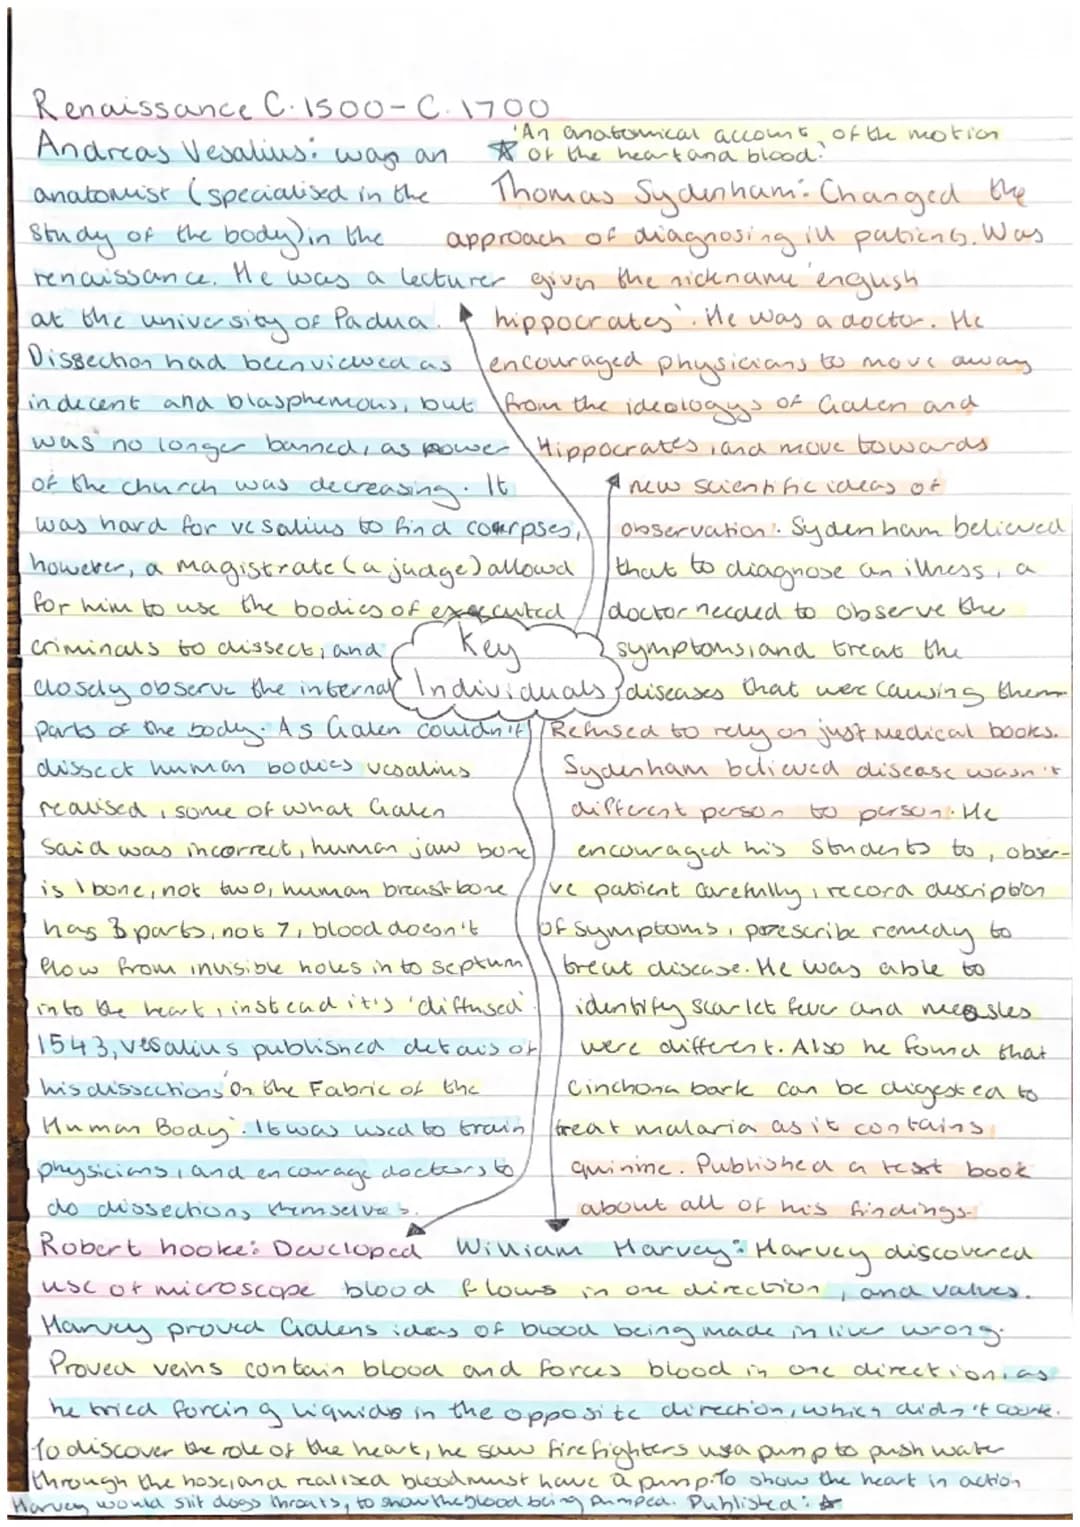 Renaissance C.1500-C.1700
Andreas Vesalius: was an
anatomist (specialised in the
study of the body) in the
renaissance. He was a lecturer
at the university of Padua.
Dissection had been viewed as
indecent and blasphemous, but
was no longer banned, as power
of the church was decreasing. It
was hard for vesalius to find corpses,
however, a magistrate (a judge) allowd
for him to use the bodies of executed
criminals to dissect, and
closely observe the internal
parts of the body. As Galen couldn't
dissect human bodies vesalius
realised, some of what Galen
said was incorrect, human jaw bone
is 1 bone, not two, human breastbone
has 3 parts, not 7, blood doesn't
flow from invisible holes in to septum
into the heart, instead it's 'diffused'.
1543, vesalius published details of
his dissections 'On the Fabric of the
Human Body'. It was used to train
physicians, and encourage doctors to
do dissections themselves.
'An anatomical account, of the motion
☆ of the heart and blood.'
Thomas Sydenham: Changed the
approach of diagnosing ill patients. Was
given the nickname 'english
hippocrates'. He was a doctor. He
encouraged physicians to move away
from the ideologys of Galen and
Hippocrates, and move towards
new scientific ideas of
observation. Sydenham believed
that to diagnose an illness, a
doctor needed to observe the
symptoms, and treat the
diseases that were causing them
Refused to rely on just medical books.
Sydenham believed disease wasn't
different person to person. He
encouraged his students to, obser-
ve patient carefully, record description
of symptoms, prescribe remedy to
treat disease. He was able to
identify scarlet fever and measles
were different. Also he found that
Cinchona bark can be digested to
treat malaria as it contains
quinine. Published a text book
about all of his findings.
Key
Individuals
Robert hooke: Developed
use of microscope
William Harvey: Harvey discovered
blood flows in one direction, and valves.
Harvey proved Galens ideas of blood being made in liver wrong.
Proved veins contain blood and forces blood in one direction, as
he tried forcing liquids in the opposite direction, which didn't work.
To discover the role of the heart, he saw firefighters use a pump to push water
through the hose, and realised blood must have a pump. To show the heart in action
Harvey would slit dogs throats, to show the blood being pumped. Published: ☆